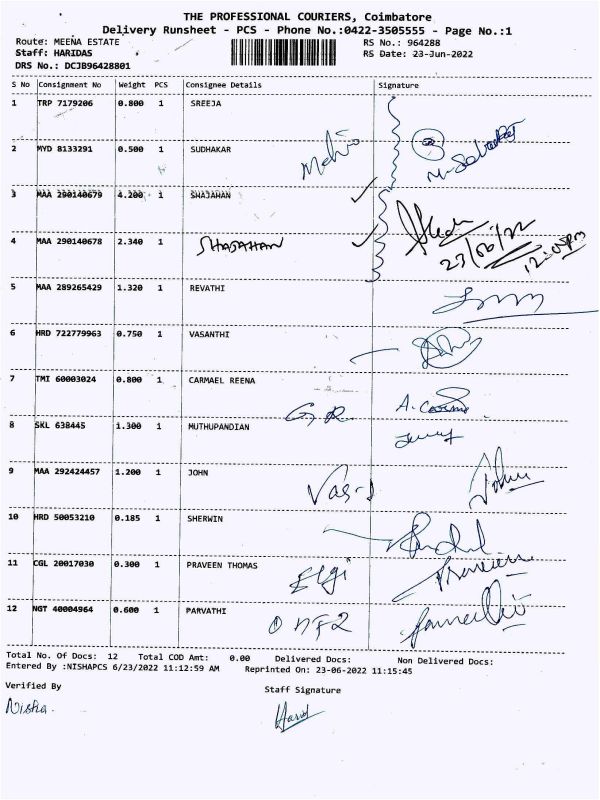 THE PROFESSIONAL COURIERS, Coimbatore
Delivery Runsheet - PCS - Phone No.:0422-3505555 - Page No.:1
Route: MEENA ESTATE RS No.: 964288
Staff: HARIDAS RS Date: 23-Jun-2022
DRS No.: DCJB96428801
S No Consignment No Weight PCS Consignee Details Signature
1 TRP 7179206 0.800 1 SREEJA
2 MYD 8133291 0.500 1 SUDHAKAR
3 MAA 290140679 4.200 1 SHAJAHAN
4 MAA 290140678 2.340 1 SHAJAHAN
23/06/22
12:05pm
5 MAA 289265429 1.320 1 REVATHI
6 HRD 722779963 0.750 1 VASANTHI
7 TMI 60003024 0.800 1 CARMAEL REENA
G.R
8 SKL 638445 1.300 1 MUTHUPANDIAN
9 MAA 292424457 1.200 1 JOHN
John
10 HRD 50053210 0.185 1 SHERWIN
11 CGL 20017030 0.300 1 PRAVEEN THOMAS
Elgi
12 NGT 40004964 0.600 1 PARVATHI
Total No. Of Docs: 12 Total COD Amt: 0.00 Delivered Docs: Non Delivered Docs:
Entered By :NISHAPCS 6/23/2022 11:12:59 AM Reprinted On: 23-06-2022 11:15:45
Verified By Staff Signature
Nisha.